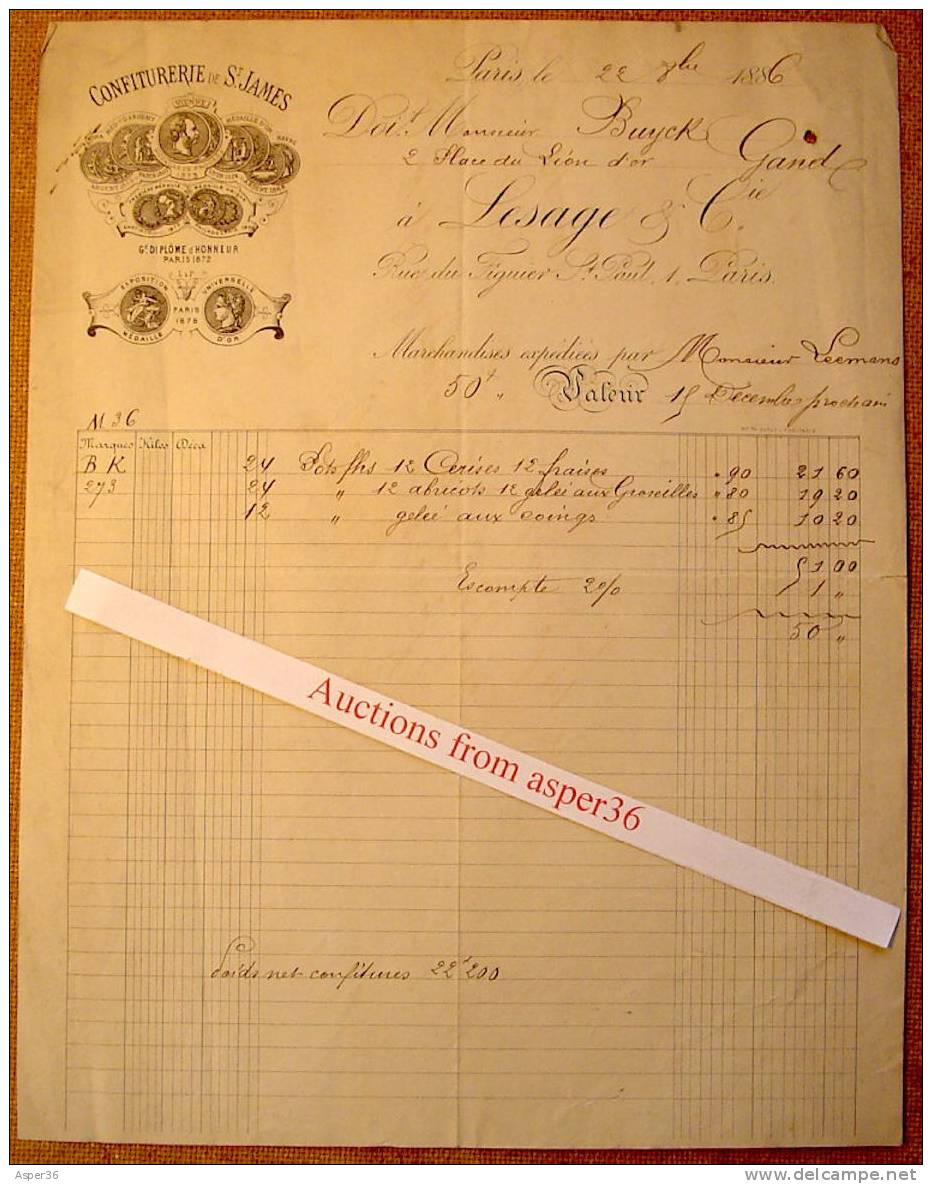 CONFITURERIE DE ST. JAMES
VIENNE
Gd. DIPLÔME d'HONNEUR
PARIS 1872
EXPOSITION UNIVERSELLE
PARIS
1878
MÉDAILLE D'OR
Paris, le 22 1886
Doit Monsieur Buyck
2 Place du Lion d'or Gand
à Lesage & Cie.
Rue du Figuier St. Paul, 1, Paris.
Marchandises expédiées par Monsieur Leemans
50 f " Valeur 15 Decembre prochain
M 36
Marques Kilos Deca
B K 24 Pots fhs 12 Cerises 12 fraises " 90 21 60
273 24 " 12 abricots 12 gelée aux Groseilles " 80 19 20
12 " gelée aux coings " 85 10 20
51 00
Escompte 2 % 1 "
50 "
Auctions from asper36
Poids net confitures 22k 200
Asper36
www.delcampe.net